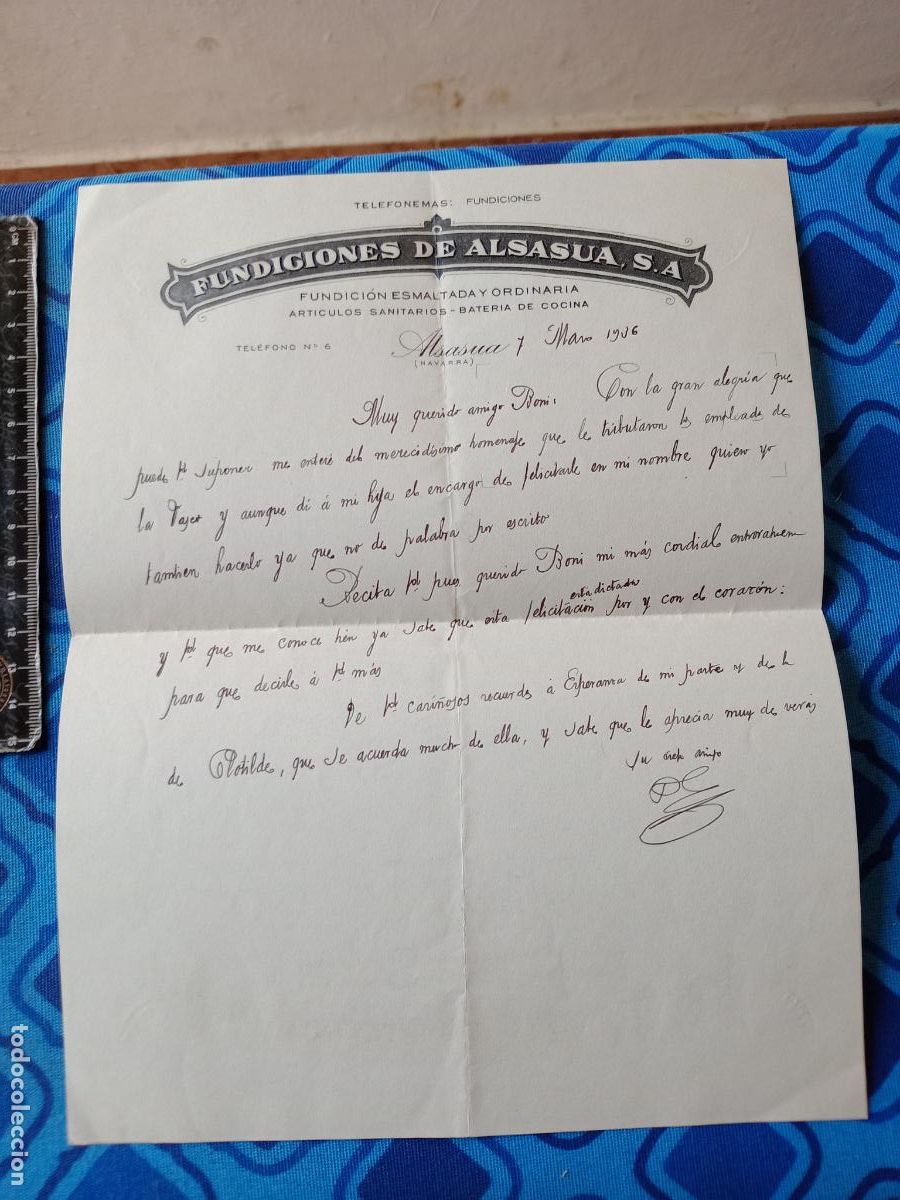 TELEFONEMAS: FUNDICIONES
FUNDICIONES DE ALSASUA, S.A
FUNDICIÓN ESMALTADA Y ORDINARIA
ARTICULOS SANITARIOS - BATERIA DE COCINA
TELÉFONO Nº 6
Alsasua 7 Marzo 1936
(NAVARRA)
Muy querido amigo Boni: Con la gran alegría que
puede Vd suponer me enteré del merecidísimo homenaje que le tributaron los empleados de
la y aunque dí á mi hija el encargo de felicitarle en mi nombre quiero yo
tambien hacerlo ya que no de palabra por escrito
Reciba Vd pues querido Boni mi más cordial enhorabuena
y Vd que me conoce bien ya sabe que esta felicitación está dictada por y con el corazón:
para que decirle á Vd más
De Vd cariñosos recuerdos á Esperanza de mi parte y de la
de Clotilde, que se acuerda mucho de ella, y sabe que le aprecia muy de veras
su amigo
0 CM 1 2 3 4 5 6 7 8 9 10 11 12 13 14 15
todocoleccion.net